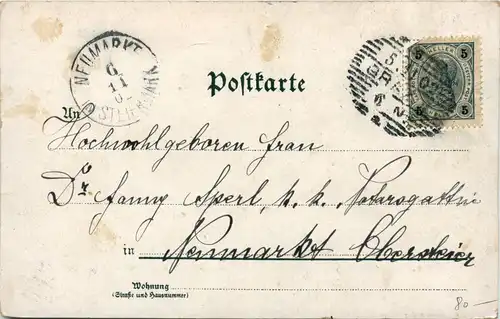 NEUMARKT
6
11
STEIERMARK
Postkarte
5 HELLER 5
GRAZ
5 5
An
Hochwohlgeboren Frau
Dr Fanny Sperl, k. k. Notarsgattin
in Neumarkt Obersteier
Wohnung
(Straße und Hausnummer)
80—